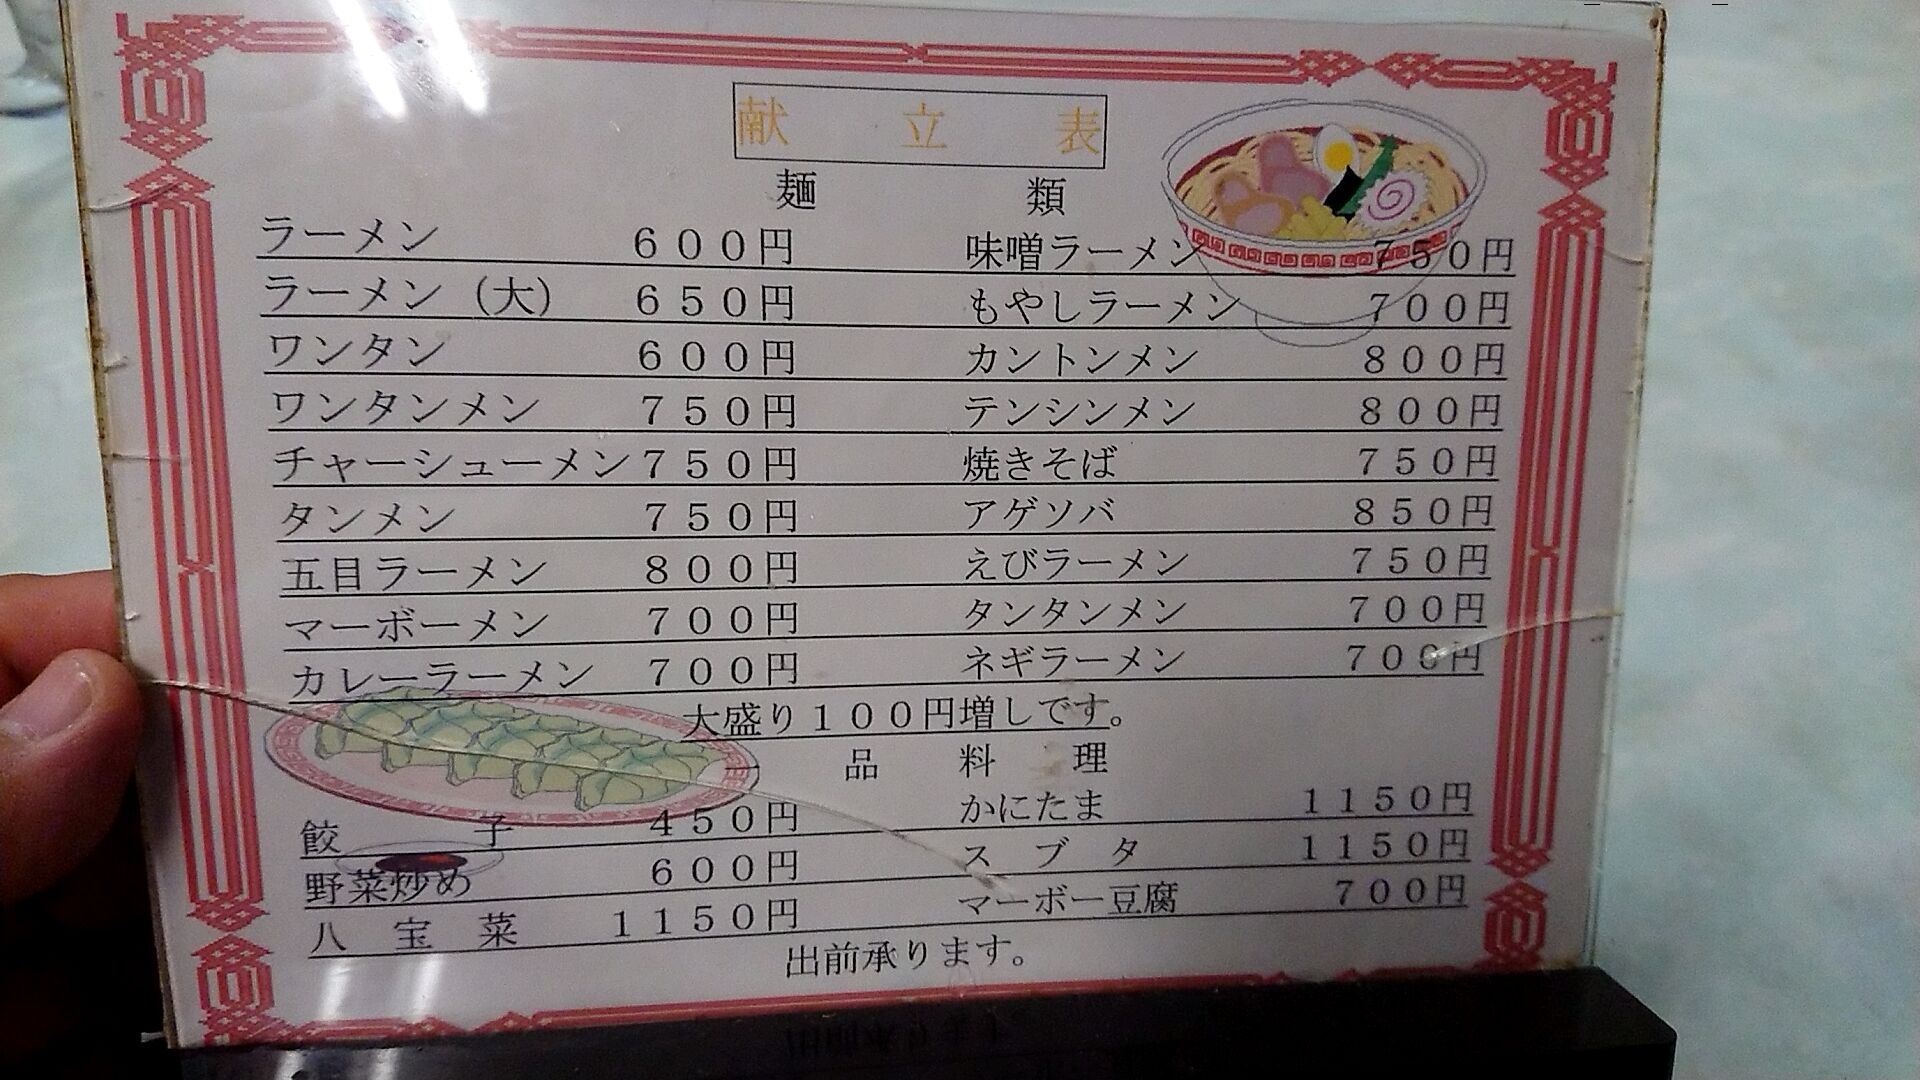 献立表
麺類
ラーメン 600円 味噌ラーメン 750円
ラーメン（大） 650円 もやしラーメン 700円
ワンタン 600円 カントンメン 800円
ワンタンメン 750円 テンシンメン 800円
チャーシューメン 750円 焼きそば 750円
タンメン 750円 アゲソバ 850円
五目ラーメン 800円 えびラーメン 750円
マーボーメン 700円 タンタンメン 700円
カレーラーメン 700円 ネギラーメン 700円
大盛り100円増しです。
一品料理
餃子 450円 かにたま 1150円
野菜炒め 600円 スブタ 1150円
八宝菜 1150円 マーボー豆腐 700円
出前承ります。